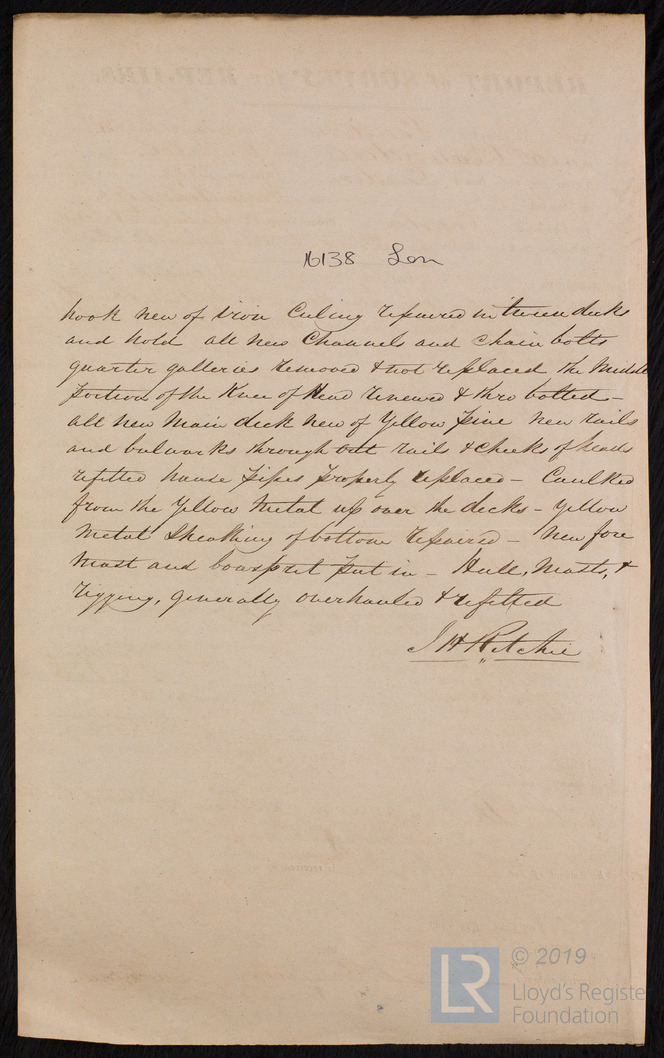 16138 Lon
hook new of iron Ceiling repaired in tween decks
and hold all new Channels and chain bolts
quarter galleries removed & not replaced the Middle
portion of the Knee of Head renewed & thro bolted -
all new main deck new of Yellow pine new rails
and bulwarks through out rails & cheeks of heads
refitted hawse pipes properly replaced - Caulked
from the Yellow Metal up over the decks - Yellow
Metal Sheathing of bottom repaired - New fore
Mast and bowsprit put in - Hull, Masts, &
rigging, generally overhauled & refitted
J H Ritchie
© 2019
LR
Lloyd's Registe
Foundation